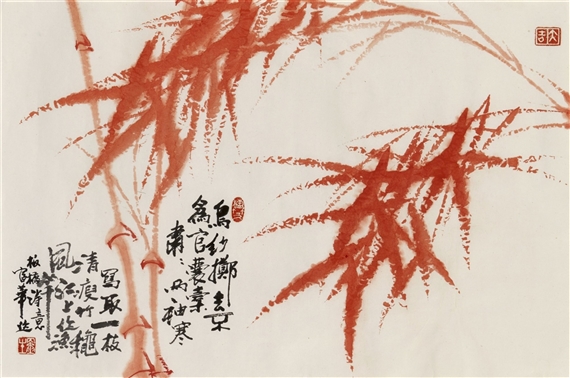 大吉
烏紗擲去不
為官囊橐
蕭〻兩袖寒
寫取一枝
清瘦竹穐
風江上作漁
竿
板橋詩意